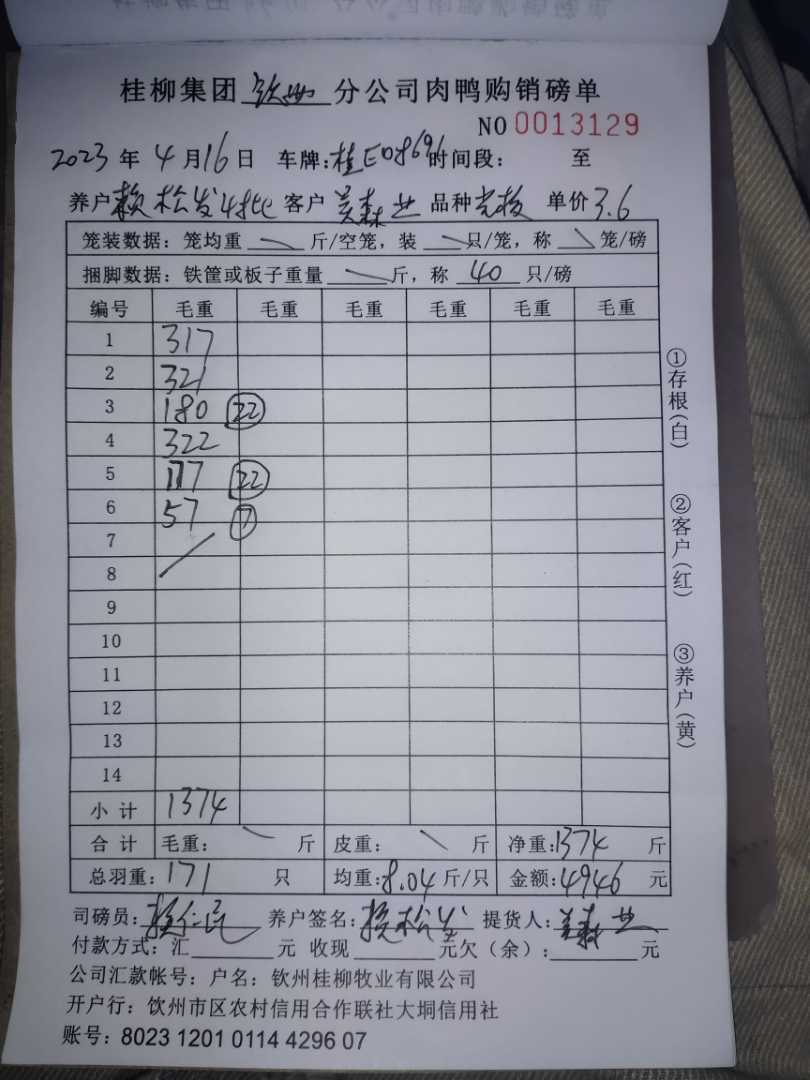 桂柳集团 钦州 分公司肉鸭购销磅单
NO 0013129
2023 年 4 月 16 日 车牌:桂E08696 时间段: 至
养户 赖松发4批 客户 吴森业 品种 单价 3.6
笼装数据:笼均重 斤/空笼,装 只/笼,称 笼/磅
捆脚数据:铁筐或板子重量 斤,称 40 只/磅
编号 毛重 毛重 毛重 毛重 毛重 毛重
1 317
2 321
3 180 22
4 322
5 177 22
6 57 7
7
8
9
10
11
12
13
14
小计 1374
合计 毛重: 斤 皮重: 斤 净重:1374 斤
总羽重:171 只 均重:8.04 斤/只 金额:4946 元
司磅员: 养户签名:赖松发 提货人:吴森业
付款方式:汇 元 收现 元欠(余): 元
公司汇款帐号:户名:钦州桂柳牧业有限公司
开户行:饮州市区农村信用合作联社大垌信用社
账号:8023 1201 0114 4296 07
①存根(白)
②客户(红)
③养户(黄)